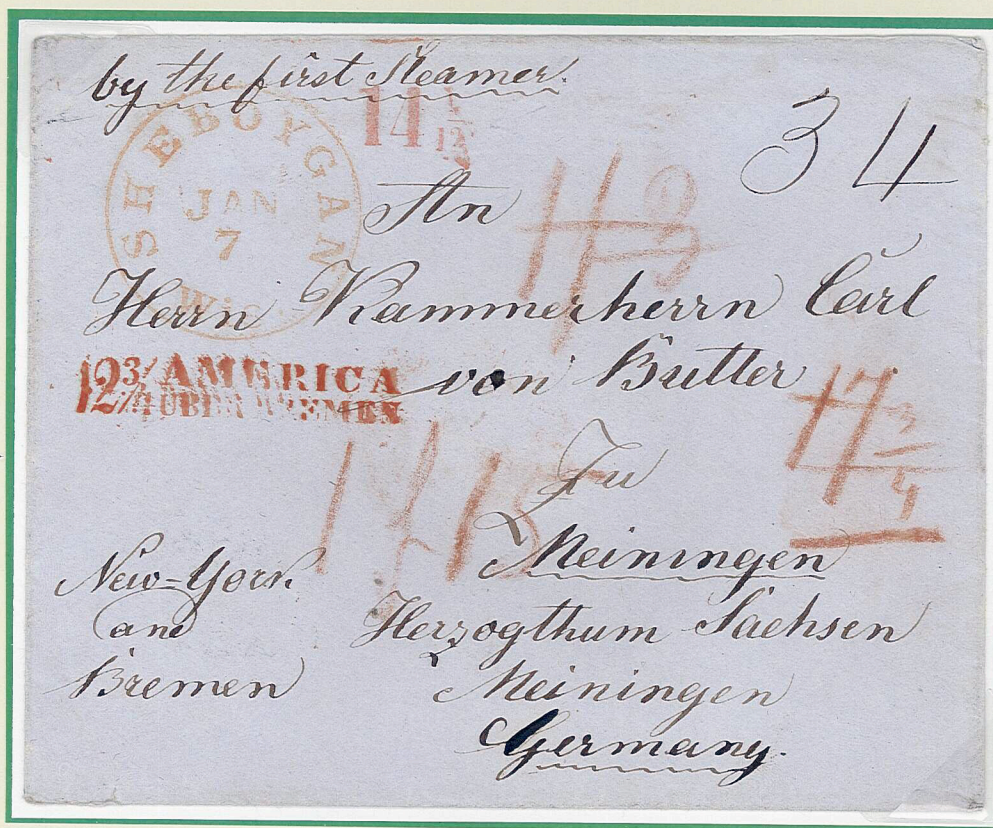 by the first Steamer.
SHEBOYGAN
JAN
7
Wis.
14 1/12
34
An
Herrn Kammerherrn Carl
von Butler
12 3/4 AMERICA
ÜBER BREMEN
17 3/4
Zu
Meiningen
Herzogthum Sachsen
Meiningen
Germany.
New-York
and
Bremen